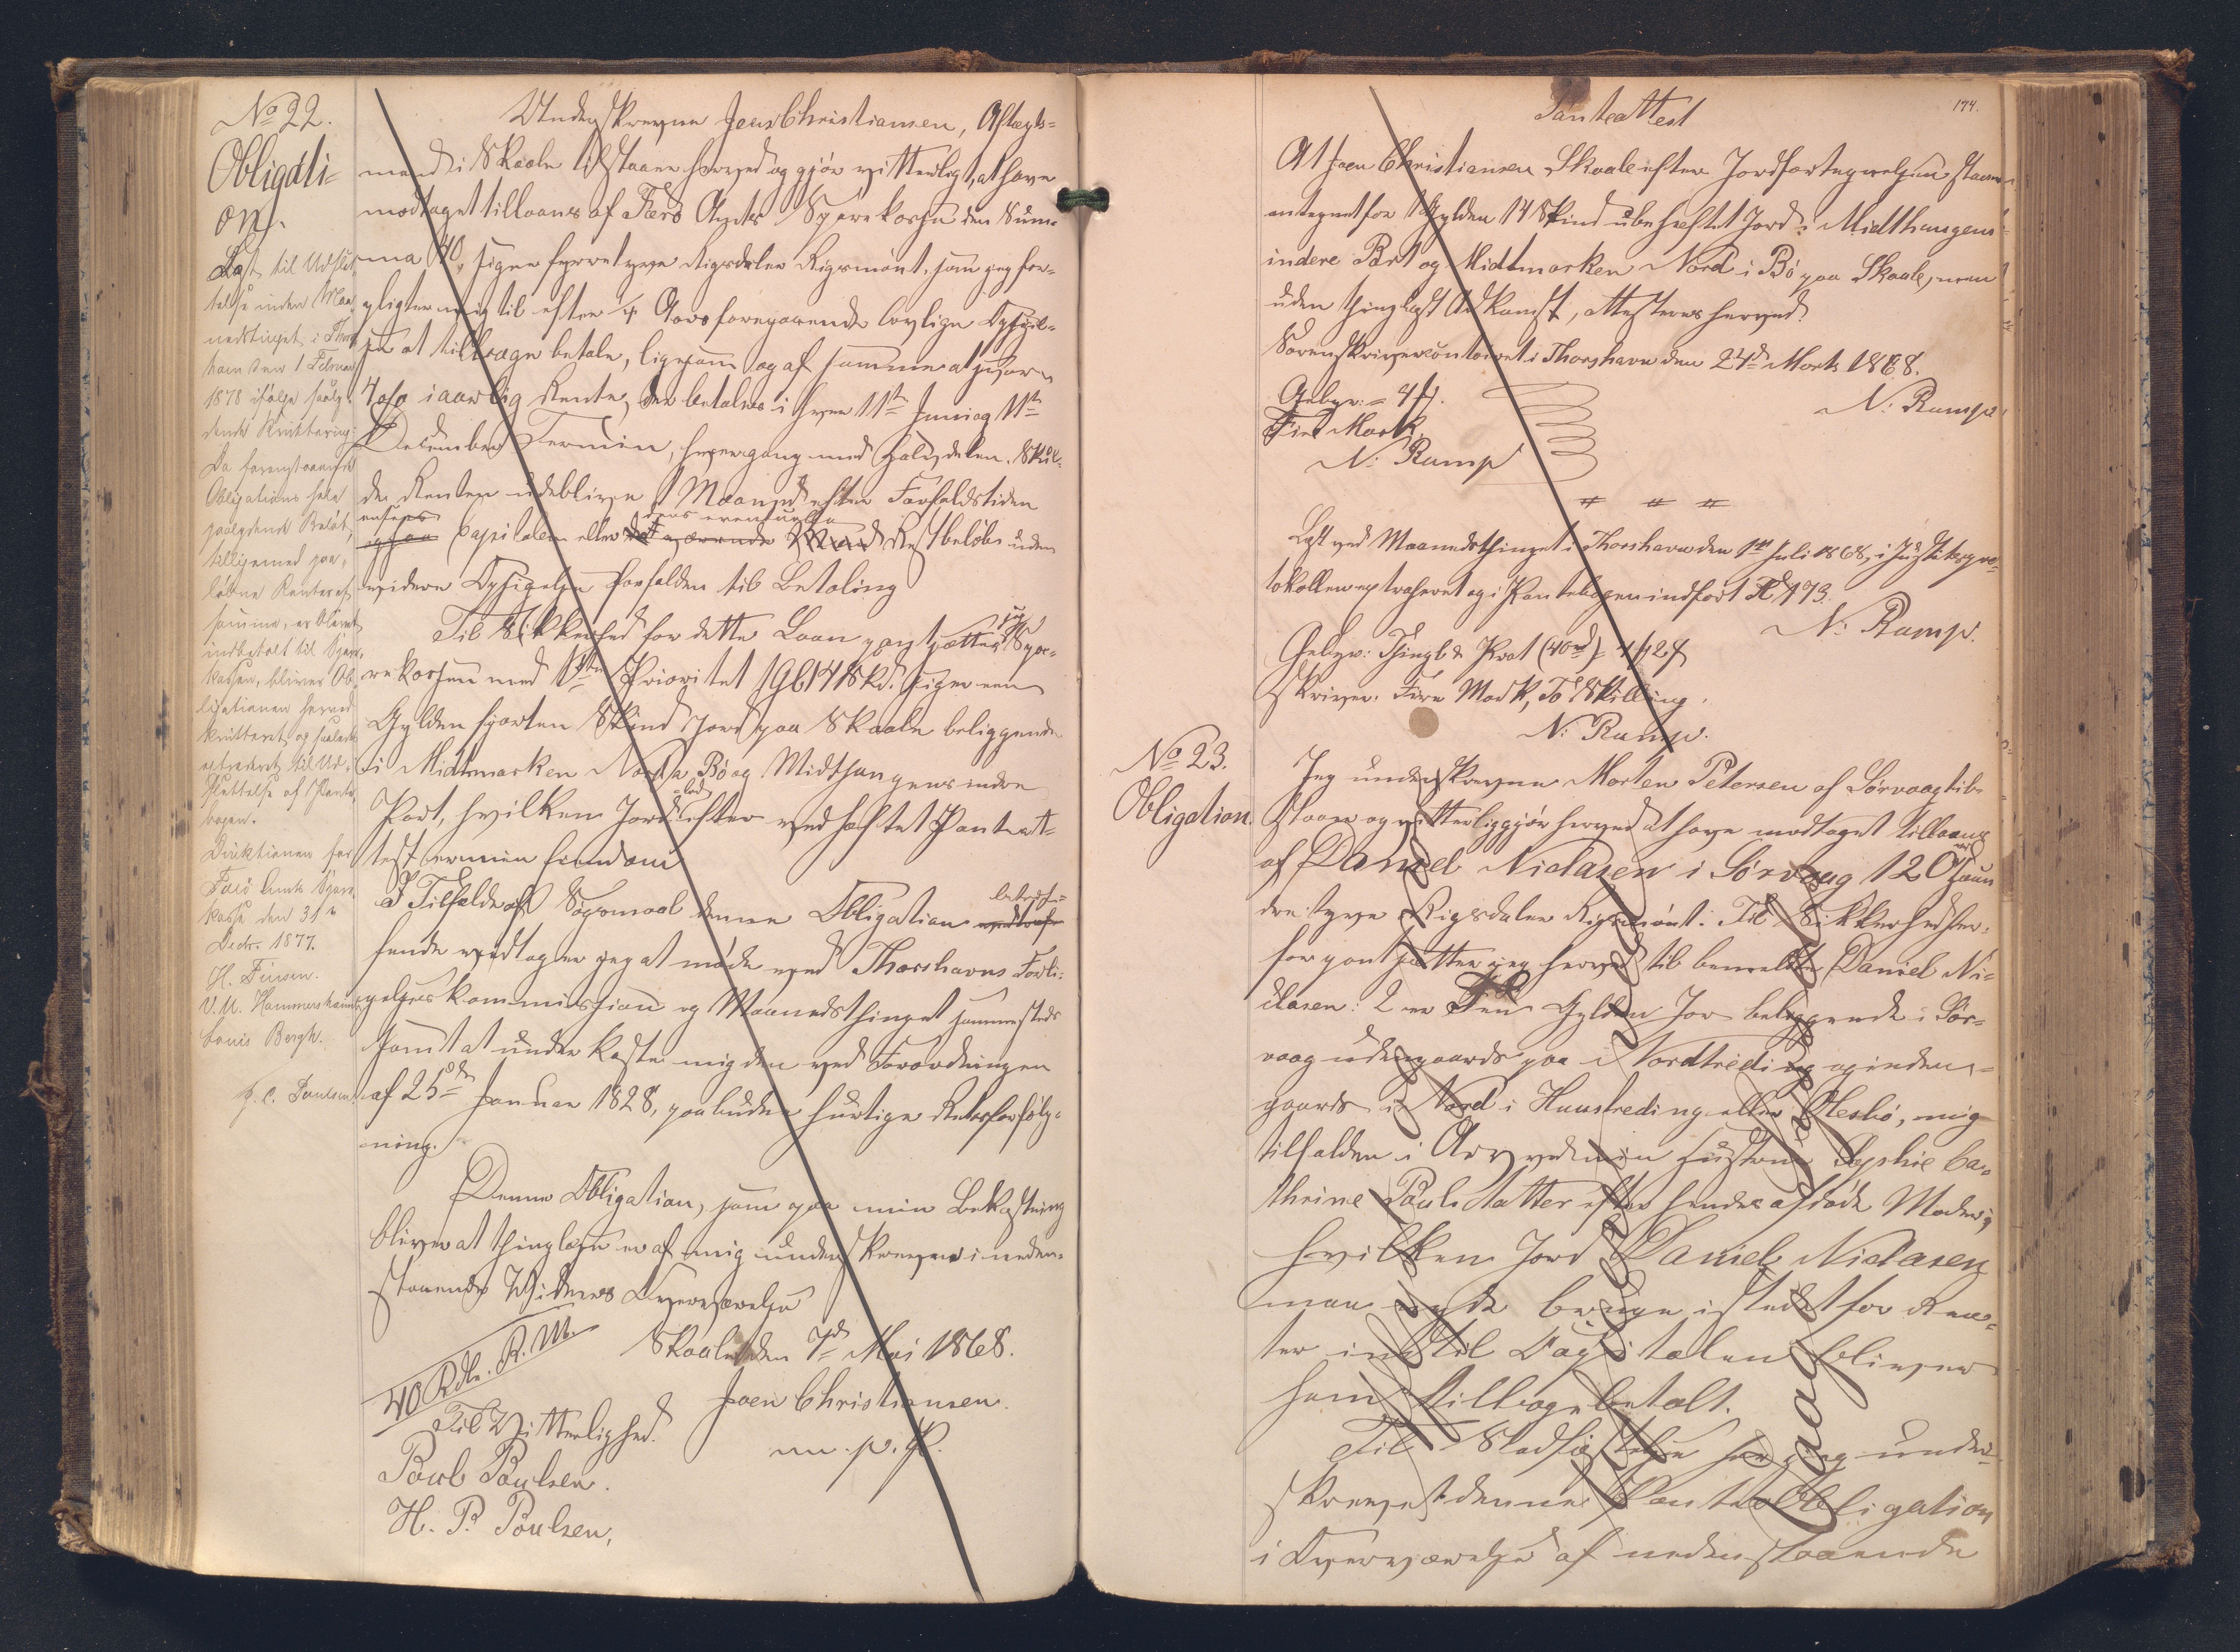 No 22.
Obligati-
on.
Læst til Udslet-
telse inden Maa-
nedstinget i Thors-
havn den 1 Februar
1878 ifølge saaly-
dende Kvittering:
Da foranstaaende
Obligations hele
paalydende Beløb,
tilligemed paa-
løbne Renter af
samme, er blevet
indbetalt til Spare-
kassen, bliver Ob-
ligationen herved
kvitteret og saaledes
extraderet til Ud-
slettelse af Pante-
bogen.
Direktionen for
Færø Amts Spare-
kasse den 31te
Decbr. 1877.
H. Finsen.
V. U. Hammershaimb
Louis Bergh.
J. C. Poulsen.
Underskrevne Joen Christiansen, Aftægts-
mand i Skaale tilstaaer herved og gjør vitterligt, at have
modtaget tillaans af Færø Amts Sparekasse den Sum-
ma 40, siger fyrretyve Rigsdaler Rigsmønt, som jeg for-
pligter mig til efter ¼ Aars foregaaende lovlige Opsigel-
se at tilbage betale, ligesom og af samme at svare
4 o/o i aarlig Rente, der betales i hver 11te Juni og 11te
December Termin, hver gang med Halvdelen. Skul-
de Renten udeblive 1 Maaned efter Forfaldstiden
ansees dens eventuelle
ogsaa Capitalen eller det værende Restbeløb uden
videre Opsigelse forfalden til Betaling
Til Sikkerhed for dette Laan pantsætter jeg Spa-
rekassen med 1ste Prioritet 1 Gl 14 Skd. siger een
Gylden fjorten Skind Jord paa Skaale beliggende
i Midtmarken Nord i Bø og Midthuugens indre
Part, hvilken Jordlod efter vedhæftet Panteat-
test er min Eiendom
I Tilfælde af Søgsmaal denne Obligation betræf-
fende vedtager jeg at møde ved Thorshavns Forli-
gelses kommission og Maanedsthinget sammesteds
samt at underkaste mig den ved Forordningen
af 25de Januar 1828, paabudne hurtige Retsforfølg-
ning.
Denne Obligation, som paa min Bekostning
bliver at thinglæse er af mig underskreven i neden-
staaende Vidners Overværelse
Skaale den 7de Mai 1868.
40 Rdlr. R. M.
Joen Christiansen.
m. p. P.
Til Vitterlighed.
Poul Poulsen.
H. P. Poulsen.
174.
Panteattest
At Joen Christiansen Skaale efter Jordfortegnelsen staaer
antegnet for 1 Gylden 14 Skind ubehæftet Jord i Midthuugens
indere Part og Midtmarken Nord i Bø paa Skaale, men
uden thinglæst Adkomst, attesteres herved.
Sorenskrivercontoiret i Thorshavn den 24de Marts 1868.
N: Rump
Gebyr: = 4 ₰.
Fire Mark.
N: Rump
# # #
Læst ved Maanedsthinget i Thorshavn den 1ste Juli 1868, i Justitspro-
tokollen extraheret og i Pantebogen indført Fol 173.
N: Rump.
Gebyr: Thingl & Prot (40rd) = 4 ₰ 2 ß
skriver: Fire Mark, To Skilling.
N: Rump.
No 23.
Obligation.
Jeg underskrevne Morten Petersen af Sørvaag til-
staaer og vitterliggjør herved at have modtaget tillaans
af Daniel Niclasen i Sørvaag 120 rd hun
dre tyve Rigsdaler Rigsmønt. Til Sikkerhed her-
for pantsætter jeg herved til bemeldte Daniel Ni-
clasen: 2 er Gylden Jor beliggende i Sør-
vaag udengaards paa Nordtreding og inden-
gaards i Nord i Huustreding eller Olesbø, mig
tilfalden i Arv ved min Hustrue Sophie Ca-
thrine Poulsdatter efter hendes afdøde Moder;
hvilken Jord Daniel Niclasen
maa nyde bruge istedet for Ren-
ter indtil Capitalen bliver
ham tilbagebetalt.
Til Stadfæstelse har jeg under-
skrevet denne Panteobligation
i Overværelse af nedenstaaende